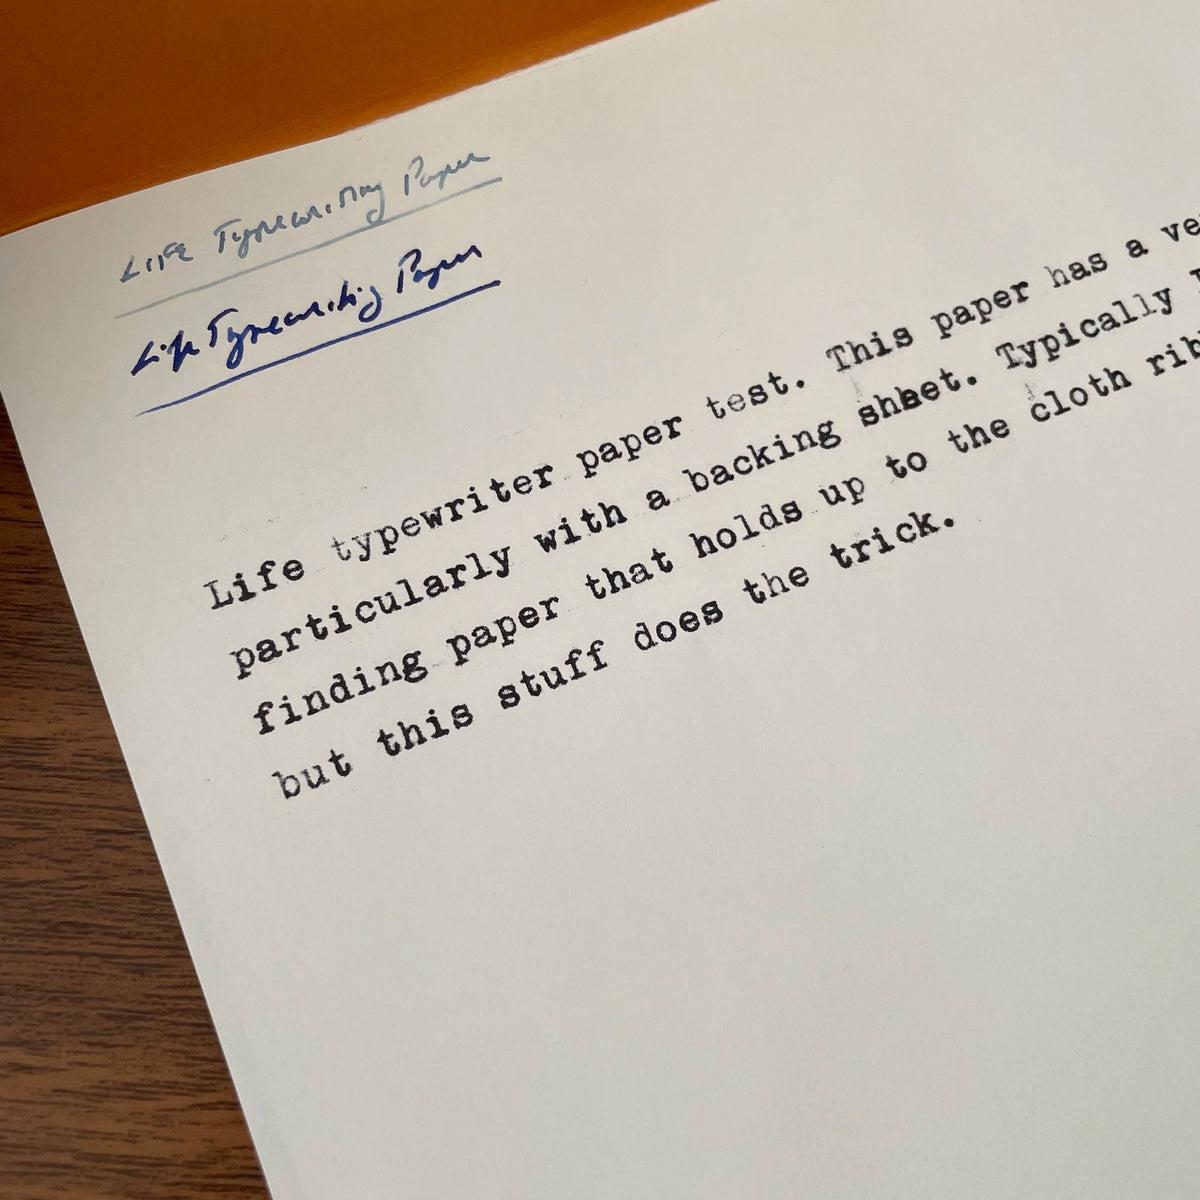 Life Typewriting Paper
Life Typewriting Paper
Life typewriter paper test. This paper has a ve
particularly with a backing sheet. Typically
finding paper that holds up to the cloth rib
but this stuff does the trick.